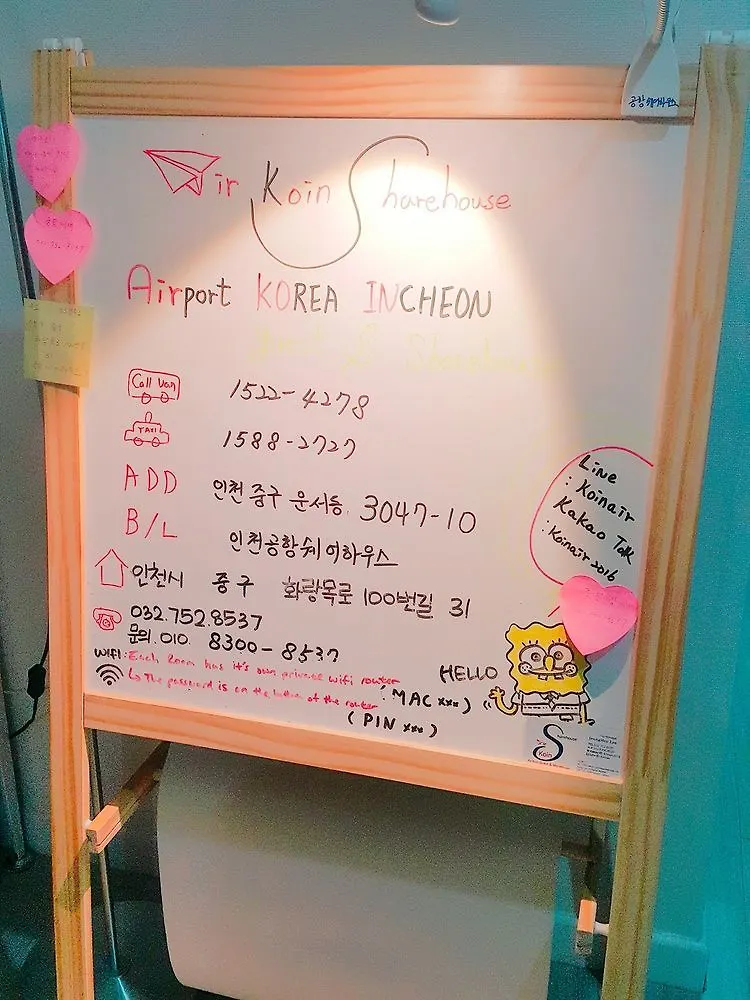 공항쉐어하우스
Air Koin Sharehouse
Airport KOREA INCHEON
Sharehouse
Call Van 1522-4278
TAXI 1588-2727
ADD 인천 중구 운서동 3047-10
B/L 인천공항쉐어하우스
인천시 중구 화랑목로 100번길 31
032.752.8537
문의.010. 8300-8537
WIFI: Each Room has it's own private wifi router
↳ The password is on the bottom of the router : MAC xxx )
( PIN xxx )
Line
: Koinair
Kakao Talk
: Koinair2016
HELLO
Sharehouse
Air
Koin